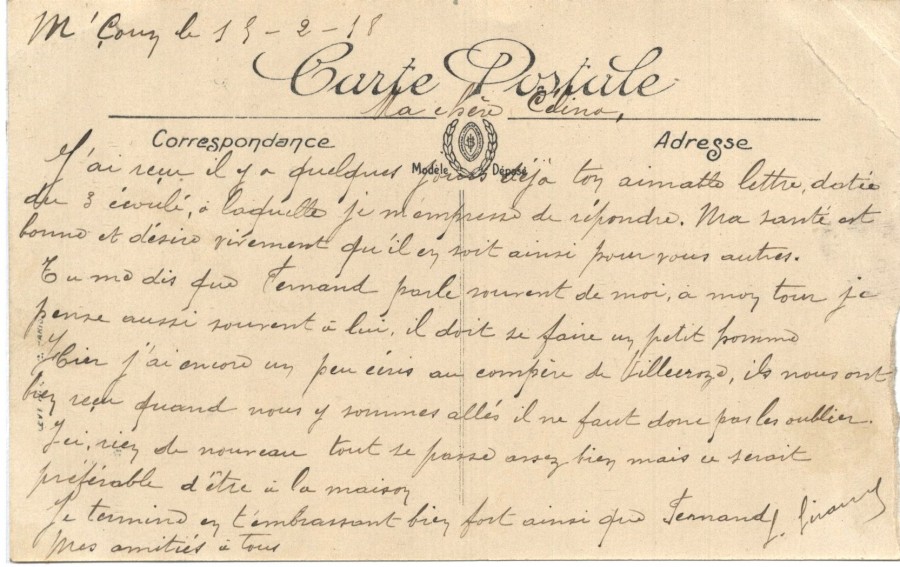 M' Çouy le 15 - 2 - 18
Carte Postale
Ma chère Célina,
Correspondance
Modèle Déposé
Adresse
J'ai reçu il y a quelques jours déjà ton aimable lettre, datée
du 3 écoulé, à laquelle je m'empresse de répondre. Ma santé est
bonne et désire vivement qu'il en soit ainsi pour vous autres.
Tu me dis que Fernand parle souvent de moi, à mon tour je
pense aussi souvent à lui, il doit se faire un petit homme
Hier j'ai encore un peu écris au compère de Villecroze, ils nous ont
bien reçu quand nous y sommes allés il ne faut donc pas les oublier.
Ici, rien de nouveau tout se passe assez bien mais ce serait
préférable d'être à la maison
Je termine en t'embrassant bien fort ainsi que Fernand
Mes amitiés à tous